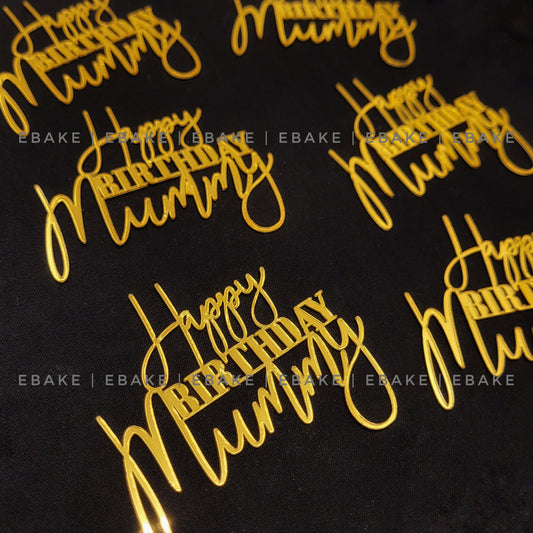 Happy
BIRTHDAY
Mummy
BIRTHDAY
Mummy
EBAKE | EBAKE | EBAKE | EBAKE | EBAKE | EBAKE
Happy
BIRTHDAY
Mummy
Happy
BIRTHDAY
Mummy
Happy
BIRTHDAY
Mummy
Happy
EBAKE | EBAKE | EBAKE | EBAKE | EBAKE | EBAKE